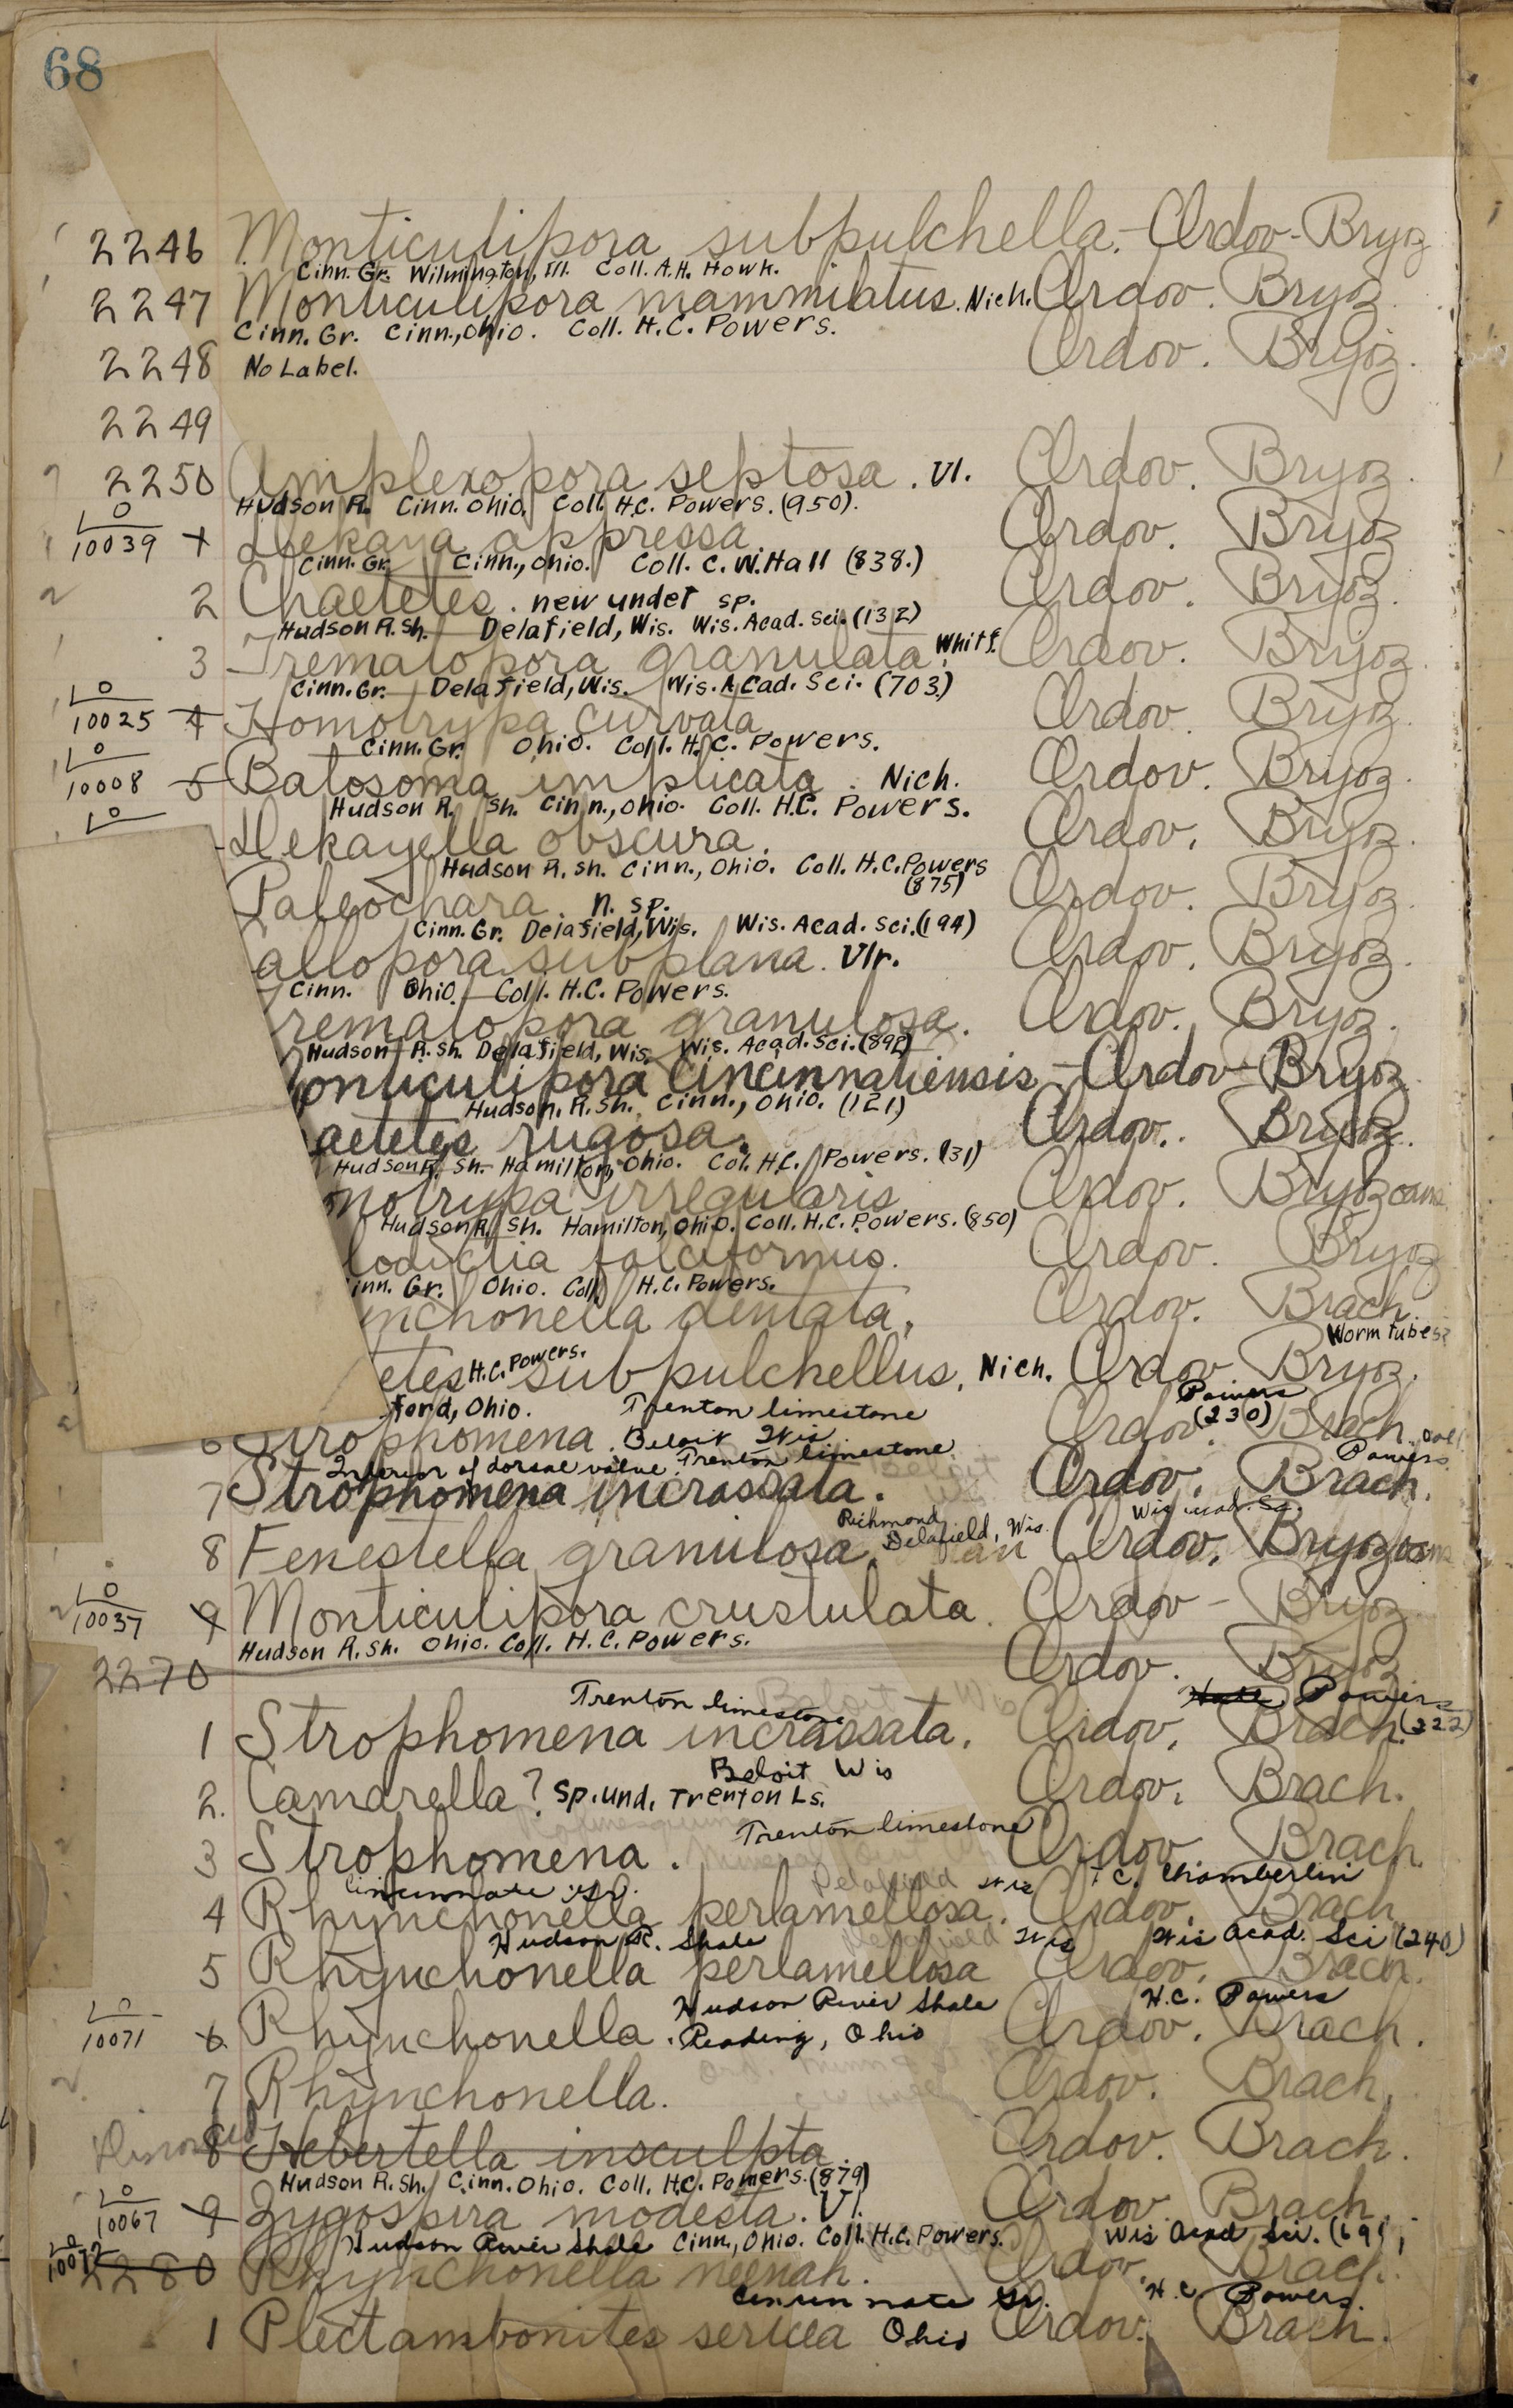 68
2246 Monticulipora subpulchella. - Ordov - Bryoz
Cinn. Gr. Wilmington, Ill. Coll. A.H. Howk.
2247 Monticulipora mammilatus. Nich. Ordov. Bryoz.
Cinn. Gr. Cinn., Ohio. Coll. H.C. Powers.
2248 No Label. Ordov. Bryoz.
2249
2250 Amplexopora septosa. Ul. Ordov. Bryoz.
Hudson R. Cinn. Ohio. Coll. H.C. Powers. (950).
10039 1 Dekaya appressa Ordov. Bryoz
Cinn. Gr. Cinn., Ohio. Coll. C.W. Hall (838.)
2 Chaetetes. new undet sp. Ordov. Bryoz.
Hudson R. Sh. Delafield, Wis. Wis. Acad. Sci. (132)
3 Trematopora granulata. Whitf. Ordov. Bryoz.
Cinn. Gr. Delafield, Wis. Wis. Acad. Sci. (703)
10025 4 Homotrypa curvata Ordov. Bryoz.
Cinn. Gr. Ohio. Coll. H.C. Powers.
10008 5 Batosoma implicata. Nich. Ordov. Bryoz.
Hudson R. Sh. Cinn., Ohio. Coll. H.C. Powers.
Dekayella obscura. Ordov. Bryoz.
Hudson R. Sh. Cinn., Ohio. Coll. H.C. Powers
(875)
Paleochara. n. sp. Ordov. Bryoz.
Cinn. Gr. Delafield, Wis. Wis. Acad. Sci. (194)
allopora subplana. Ulr. Ordov. Bryoz.
Cinn. Ohio. Coll. H.C. Powers.
rematopora granulosa. Ordov. Bryoz.
Hudson R. Sh. Delafield, Wis. Wis. Acad. Sci. (892)
onticulipora Cincinnatiensis - Ordov - Bryoz
Hudson. R. Sh. Cinn., Ohio. (121)
aetetes rugosa. Ordov. Bryoz.
Hudson R. Sh. Hamilton, Ohio. Col. H.C. Powers. (31)
notrypa irregularis Ordov. Bryozoans
Hudson R. Sh. Hamilton, Ohio. Coll. H.C. Powers. (850)
lodictia falciformis. Ordov. Bryoz
inn. Gr. Ohio. Coll H.C. Powers.
nchonella dentata. Ordov. Brach.
Worm tubes?
etes H.C. Powers. subpulchellus. Nich. Ordov Bryoz.
ford, Ohio. Trenton limestone Powers (230)
6 Strophomena. Beloit Wis Ordov. Brach.
Interior of dorsal valve. Trenton limestone. Coll Powers
7 Strophomena incrassata. Ordov. Brach.
Richmond Delafield, Wis. Wis acad. Sci.
8 Fenestella granulosa. Ordov. Bryozoans
10037 9 Monticulipora crustulata. Ordov - Bryoz.
Hudson R. Sh. Ohio. Coll. H.C. Powers.
2270 Ordov. Bryoz
Trenton limestone Powers (222)
1 Strophomena incrassata. Ordov. Brach.
Beloit Wis
2. Camarella? Sp. und. Trenton Ls. Ordov. Brach.
Trenton limestone
3 Strophomena. Ordov. Brach.
Cincinnati Gr. Delafield Wis T. C. Chamberlin
4 Rhynchonella perlamellosa. Ordov. Brach
Hudson R. Shale Delafield Wis Wis Acad. Sci (240)
5 Rhynchonella perlamellosa Ordov. Brach.
Hudson River Shale H.C. Powers
10071 6 Rhynchonella. Reading, Ohio Ordov. Brach.
7 Rhynchonella. Ordov. Brach.
8 Hebertella insculpta Ordov. Brach.
Hudson R. Sh. Cinn. Ohio. Coll. H.C. Powers. (879)
10067 9 Zygospira modesta. Ul. Ordov. Brach.
Hudson River Shale Cinn., Ohio. Coll. H.C. Powers. Wis Acad Sci. (691)
10072 2280 Rhynchonella neenah. Ordov. Brach.
Cincinnati Gr. H.C. Powers.
1 Plectambonites sericea Ohio Ordov. Brach.